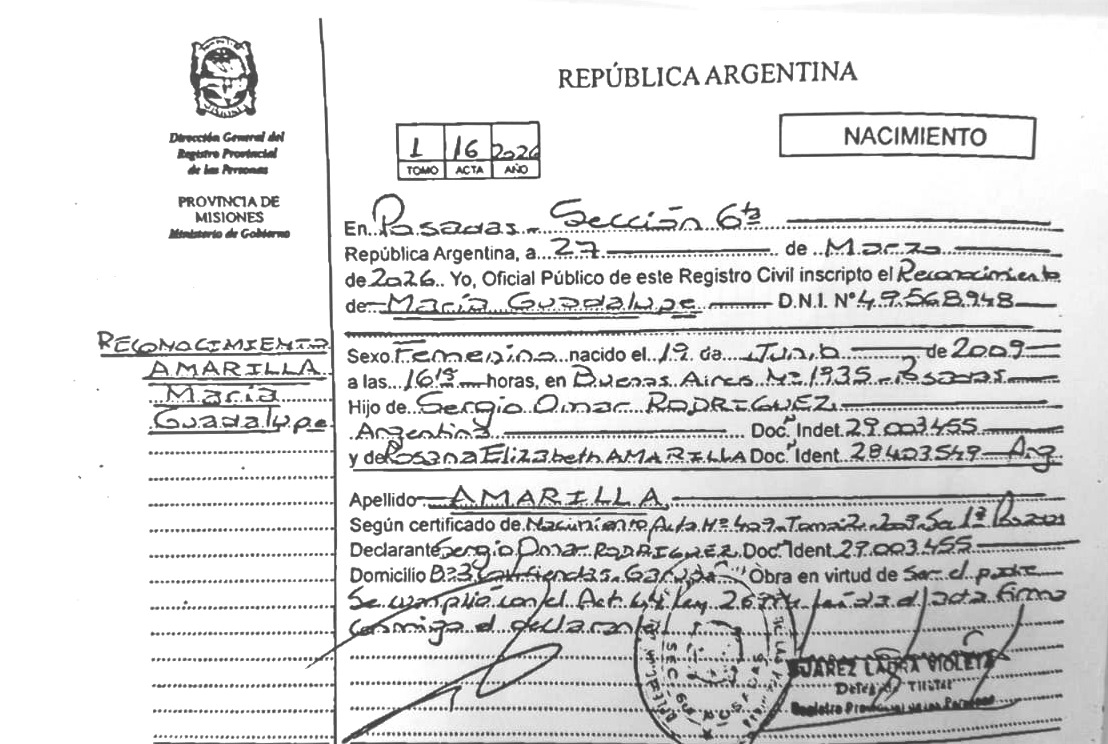 REPÚBLICA ARGENTINA
Dirección General del
Registro Provincial
de las Personas
PROVINCIA DE
MISIONES
Ministerio de Gobierno
NACIMIENTO
1 16 2026
TOMO ACTA AÑO
En Posadas - Sección 6ta
República Argentina, a 27 de Marzo
de 2026 Yo, Oficial Público de este Registro Civil inscripto el Reconocimiento
de María Guadalupe D.N.I. Nº 49.568.948
RECONOCIMIENTO
AMARILLA
María
Guadalupe
Sexo Femenino nacido el 19 de Junio de 2009
a las 16 horas, en Buenos Aires Nº 1935 - Posadas
Hijo de Sergio Omar RODRIGUEZ
Argentina Doc. Indet. 29.003.455
y de Rosana Elizabeth AMARILLA Doc. Ident. 28403549 Arg.
Apellido AMARILLA
Según certificado de Nacimiento Acta Nº 409 - Tomo 2 - 1ª Posadas
Declarante Sergio Omar RODRIGUEZ Doc. Ident. 29.003.455
Domicilio Obra en virtud de Ser el padre
Se cumplió con el Art. 44 Ley leída el acta firma
conmigo el declarante
SEC 6ta POSADAS
JUAREZ LAURA VIOLETA
Delegada Titular
Registro Provincial de las Personas